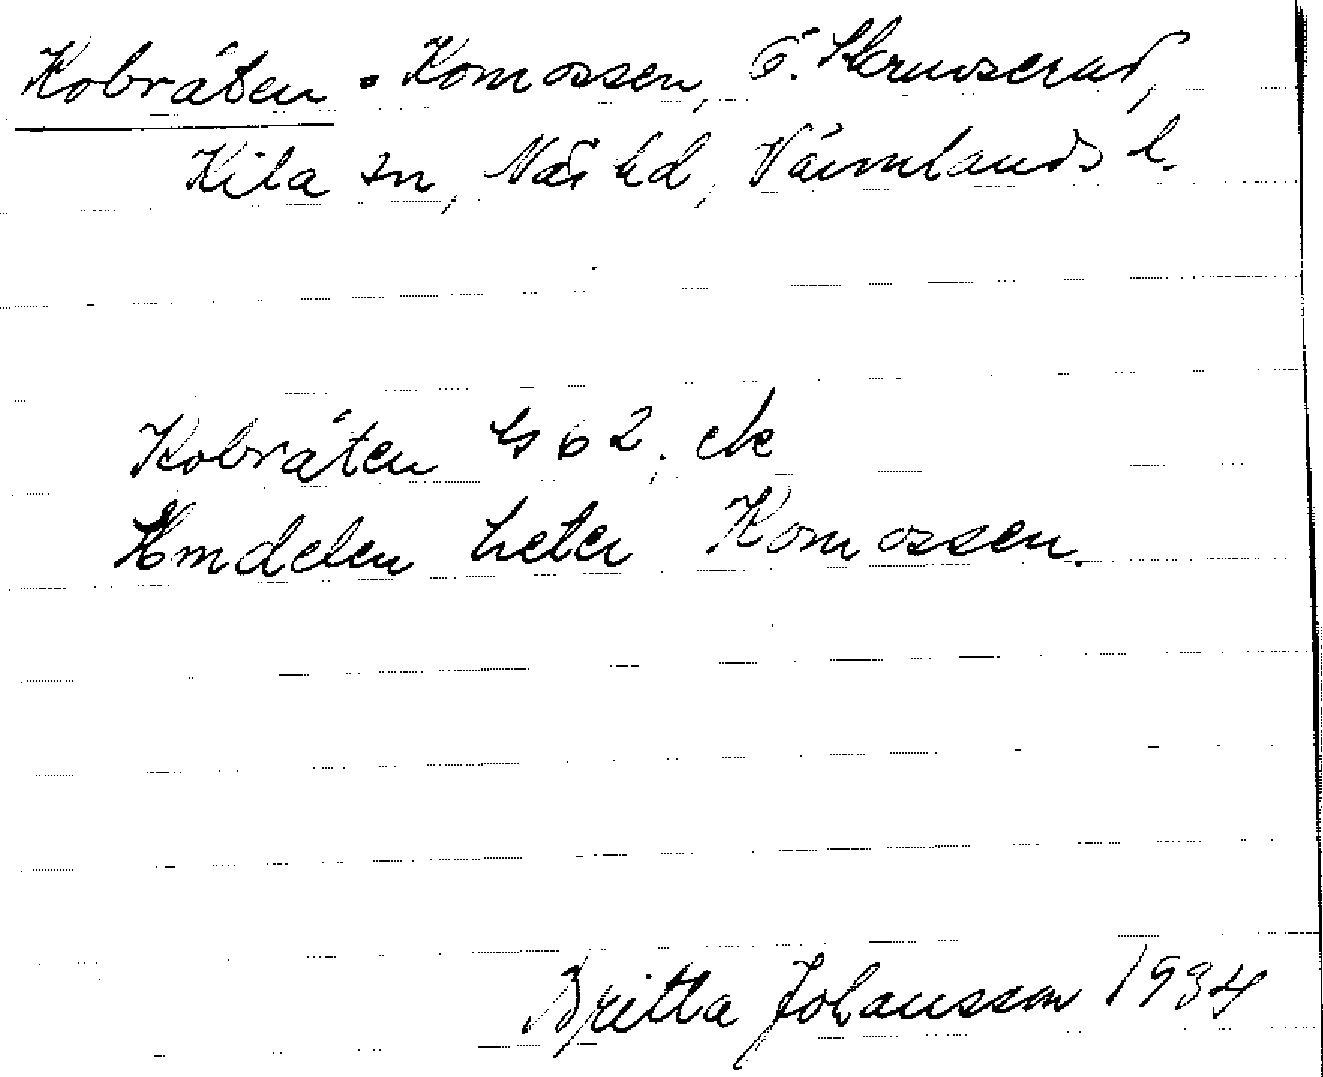 Kobråten = Komossen, Ö. Skruvserud,
Kila sn, Näs hd, Värmlands l.
Kobråten G 62; ek
Hmdelen heter Komossen.
Britta Johansson 1934